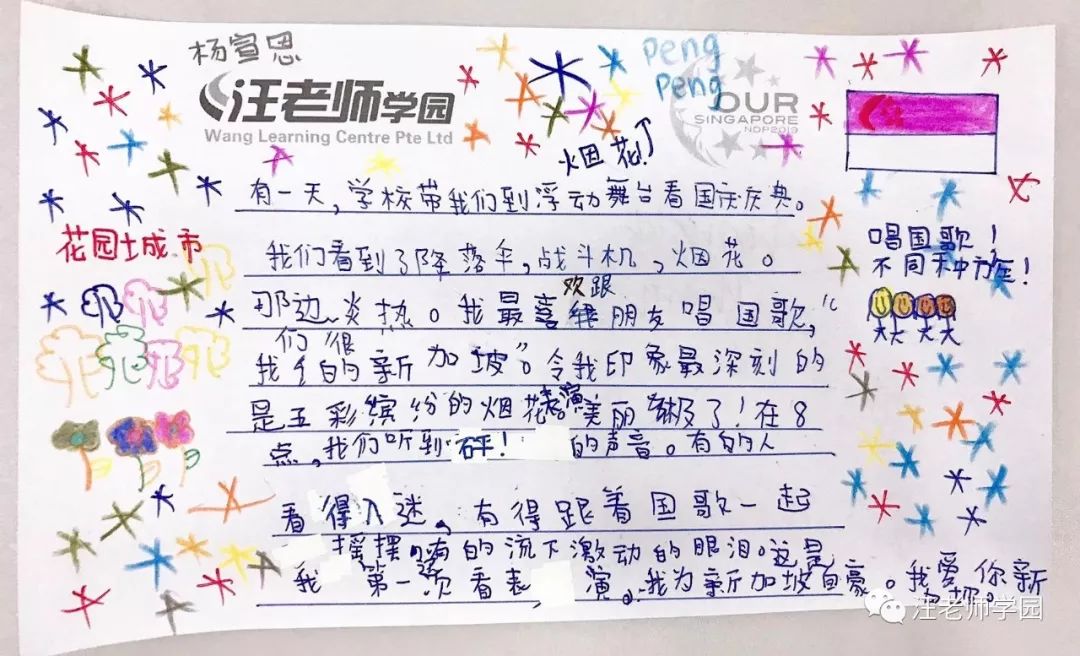 杨宣思
Peng
Peng
汪老师学园
Wang Learning Centre Pte Ltd
OUR
SINGAPORE
NDP2019
烟花!
有一天，学校带我们到浮动舞台看国庆庆典。
花园城市
唱国歌！
不同种族！
我们看到了降落伞，战斗机、烟花。
欢跟
那边炎热。我最喜朋友唱国歌，“
们“很
我的新加坡”。令我印象最深刻的
表演
是五彩缤纷的烟花。美丽极了！在8
点，我们听到“砰！的声音。有的人
看得入迷，有得跟着国歌一起
摇摆，有的流下激动的眼泪。这是
我第一次看表演。我为新加坡自豪。我爱你新
加坡。
汪老师学园